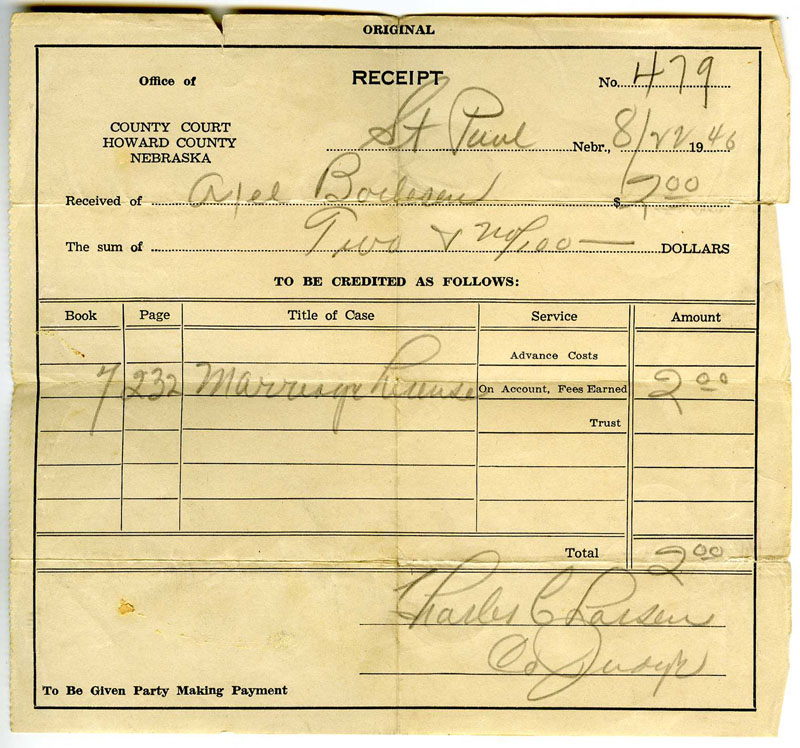 ORIGINAL
Office of RECEIPT No. 479
COUNTY COURT
HOWARD COUNTY
NEBRASKA
St Paul Nebr., 8/22 1946
Received of Axel Boilesen $2.00
The sum of Two & no/100 — DOLLARS
TO BE CREDITED AS FOLLOWS:
Book Page Title of Case Service Amount
Advance Costs
7 232 Marriage License On Account, Fees Earned 2.00
Trust
Total 2.00
Charles C Larsen
Co Judge
To Be Given Party Making Payment